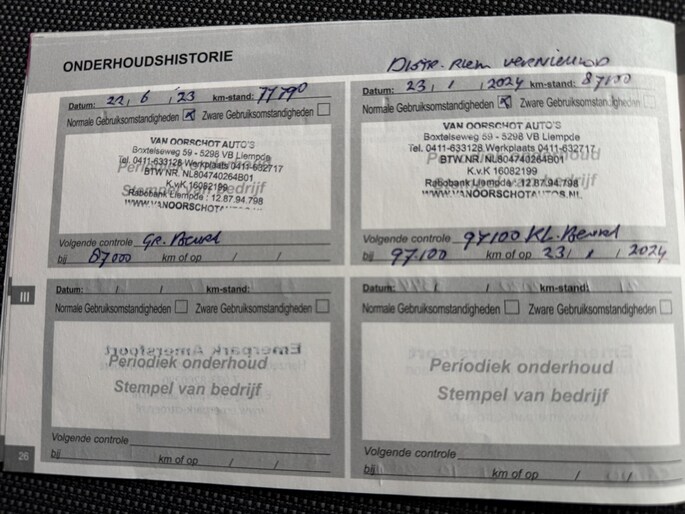 ONDERHOUDSHISTORIE
Distr. Riem vernieuwd
Datum: 22 / 6 / 23 km-stand: 77790
Normale Gebruiksomstandigheden Zware Gebruiksomstandigheden
VAN OORSCHOT AUTO'S
Boxtelseweg 59 - 5298 VB Liempde
Tel. 0411-633128 Werkplaats 0411-632717
BTW NR. NL804740264B01
K.v.K 16082199
Rabobank Liempde : 12.87.94.798
WWW.VANOORSCHOTAUTOS.NL
Periodiek onderhoud
Stempel van bedrijf
Volgende controle Gr. Beurt
bij 87000 km of op / /
Datum: 23 / 1 / 2024 km-stand: 87100
Normale Gebruiksomstandigheden Zware Gebruiksomstandigheden
VAN OORSCHOT AUTO'S
Boxtelseweg 59 - 5298 VB Liempde
Tel. 0411-633128 Werkplaats 0411-632717
BTW.NR. NL804740264B01
K.v.K 16082199
Rabobank Liempde : 12.87.94.798
WWW.VANOORSCHOTAUTOS.NL
Periodiek onderhoud
Stempel van bedrijf
Volgende controle 97100 Kl. Beurt
bij 97.100 km of op 23 / 1 / 2024
III
Datum: / / km-stand:
Normale Gebruiksomstandigheden Zware Gebruiksomstandigheden
Periodiek onderhoud
Stempel van bedrijf
Volgende controle
bij km of op / /
Datum: / / km-stand:
Normale Gebruiksomstandigheden Zware Gebruiksomstandigheden
Periodiek onderhoud
Stempel van bedrijf
Volgende controle
bij km of op / /
26